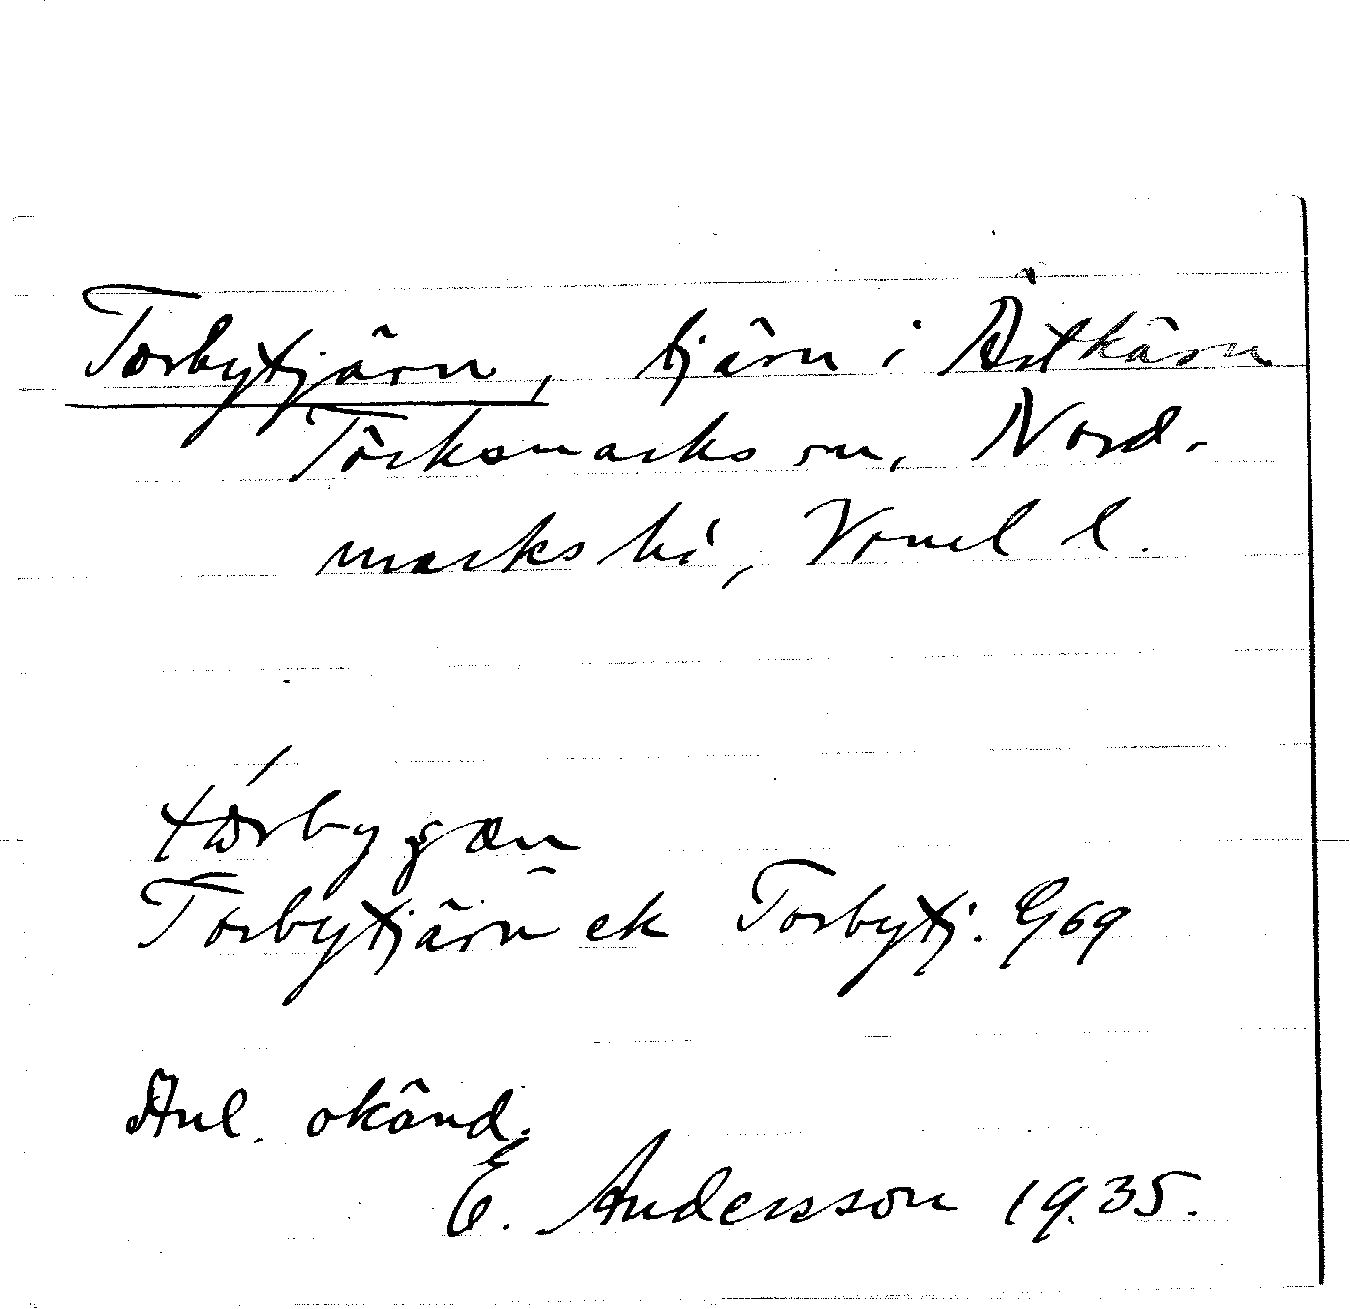 Torbytjärn, tjärn i Östkärn
Töcksmarks sn, Nord-
marks hd, Värml l.
Torbytjärn ek Torbytj. G 69
Anl. okänd.
E. Andersson 1935.